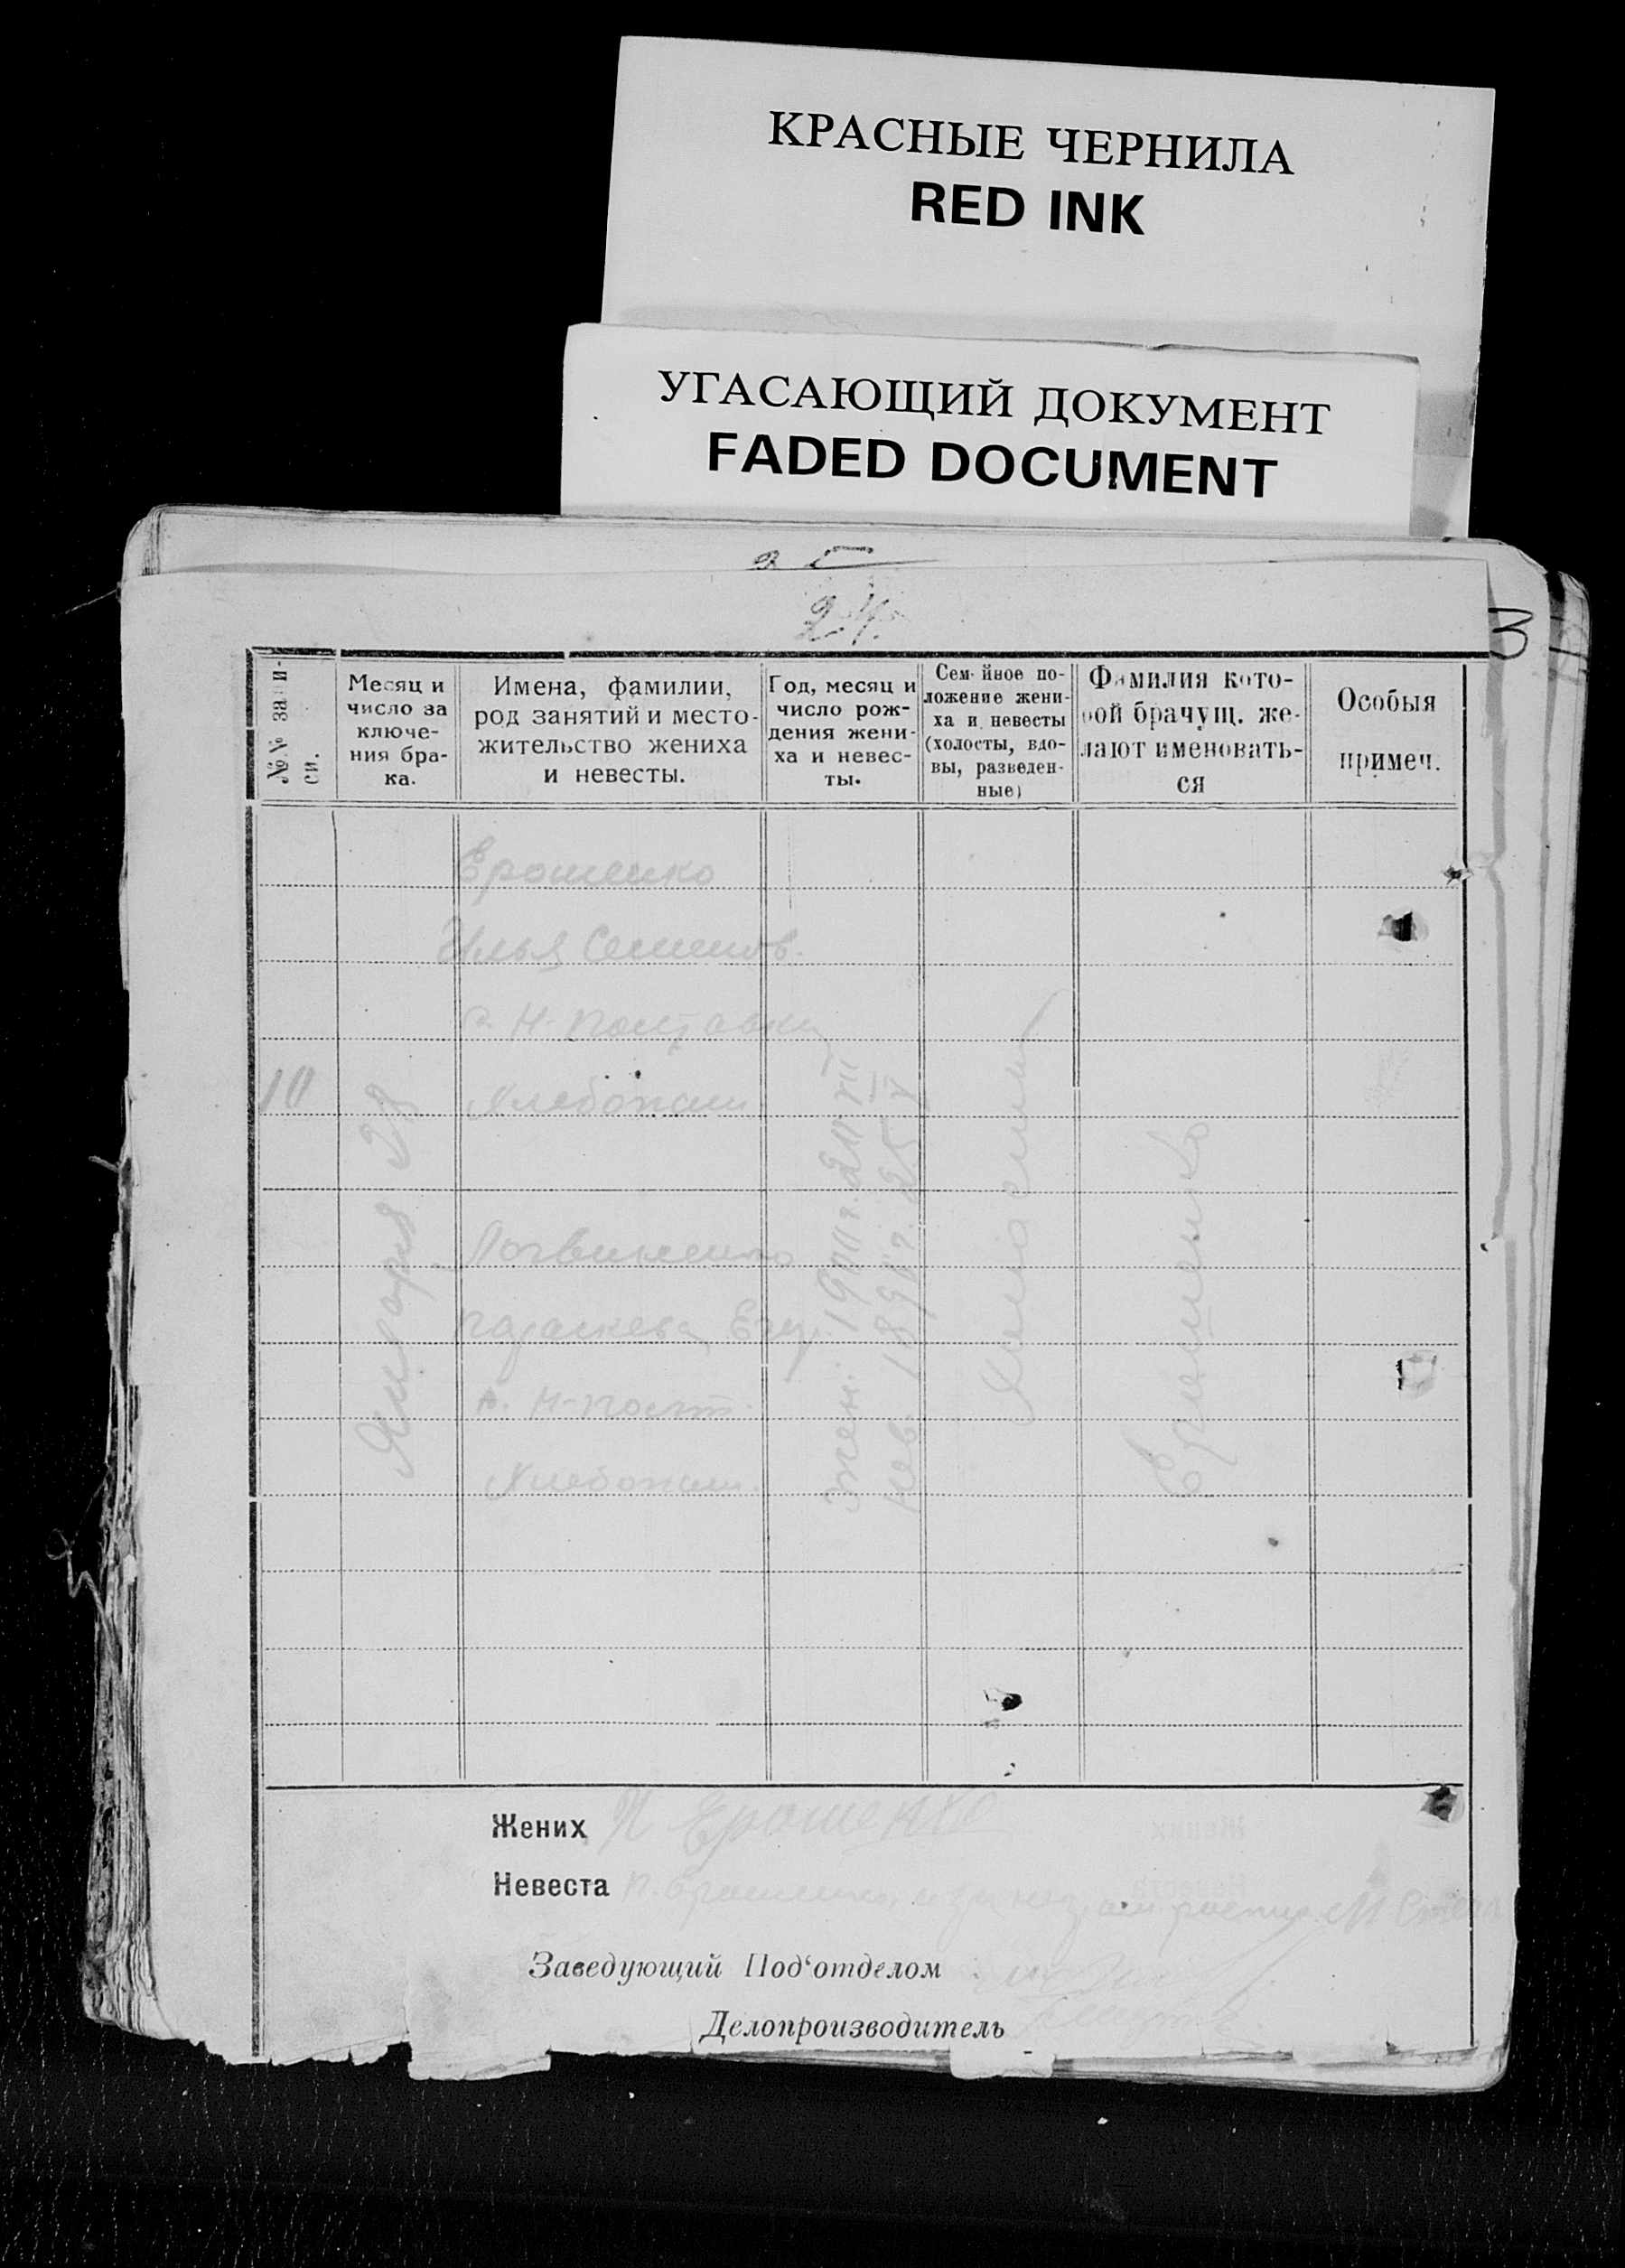 КРАСНЫЕ ЧЕРНИЛА
RED INK
УГАСАЮЩИЙ ДОКУМЕНТ
FADED DOCUMENT
24.
3
№№ записи.
Месяц и
число за
ключе-
ния бра-
ка.
Имена, фамилии,
род занятий и место-
жительство жениха
и невесты.
Год, месяц и
число рож-
дения жени-
ха и невес-
ты.
Семейное по-
ложение жени-
ха и невесты
(холосты, вдо-
вы, разведен-
ные)
Фамилия кото-
рой брачущ. же-
лают именовать-
ся
Особыя
примеч.
10
Января 28
Ерошенко
Илья Семенов.
с. Н-Полтавки
Хлебопаш.
Логвиненко
Параскева
с. Н-Полт.
Хлебопаш.
жен. 1900 г. 20 VII
нев. 189 г. 25 V
Холостые
Ерошенко
Жених И Ерошенко
Невеста
Заведующий Под‘отделом
Делопроизводитель